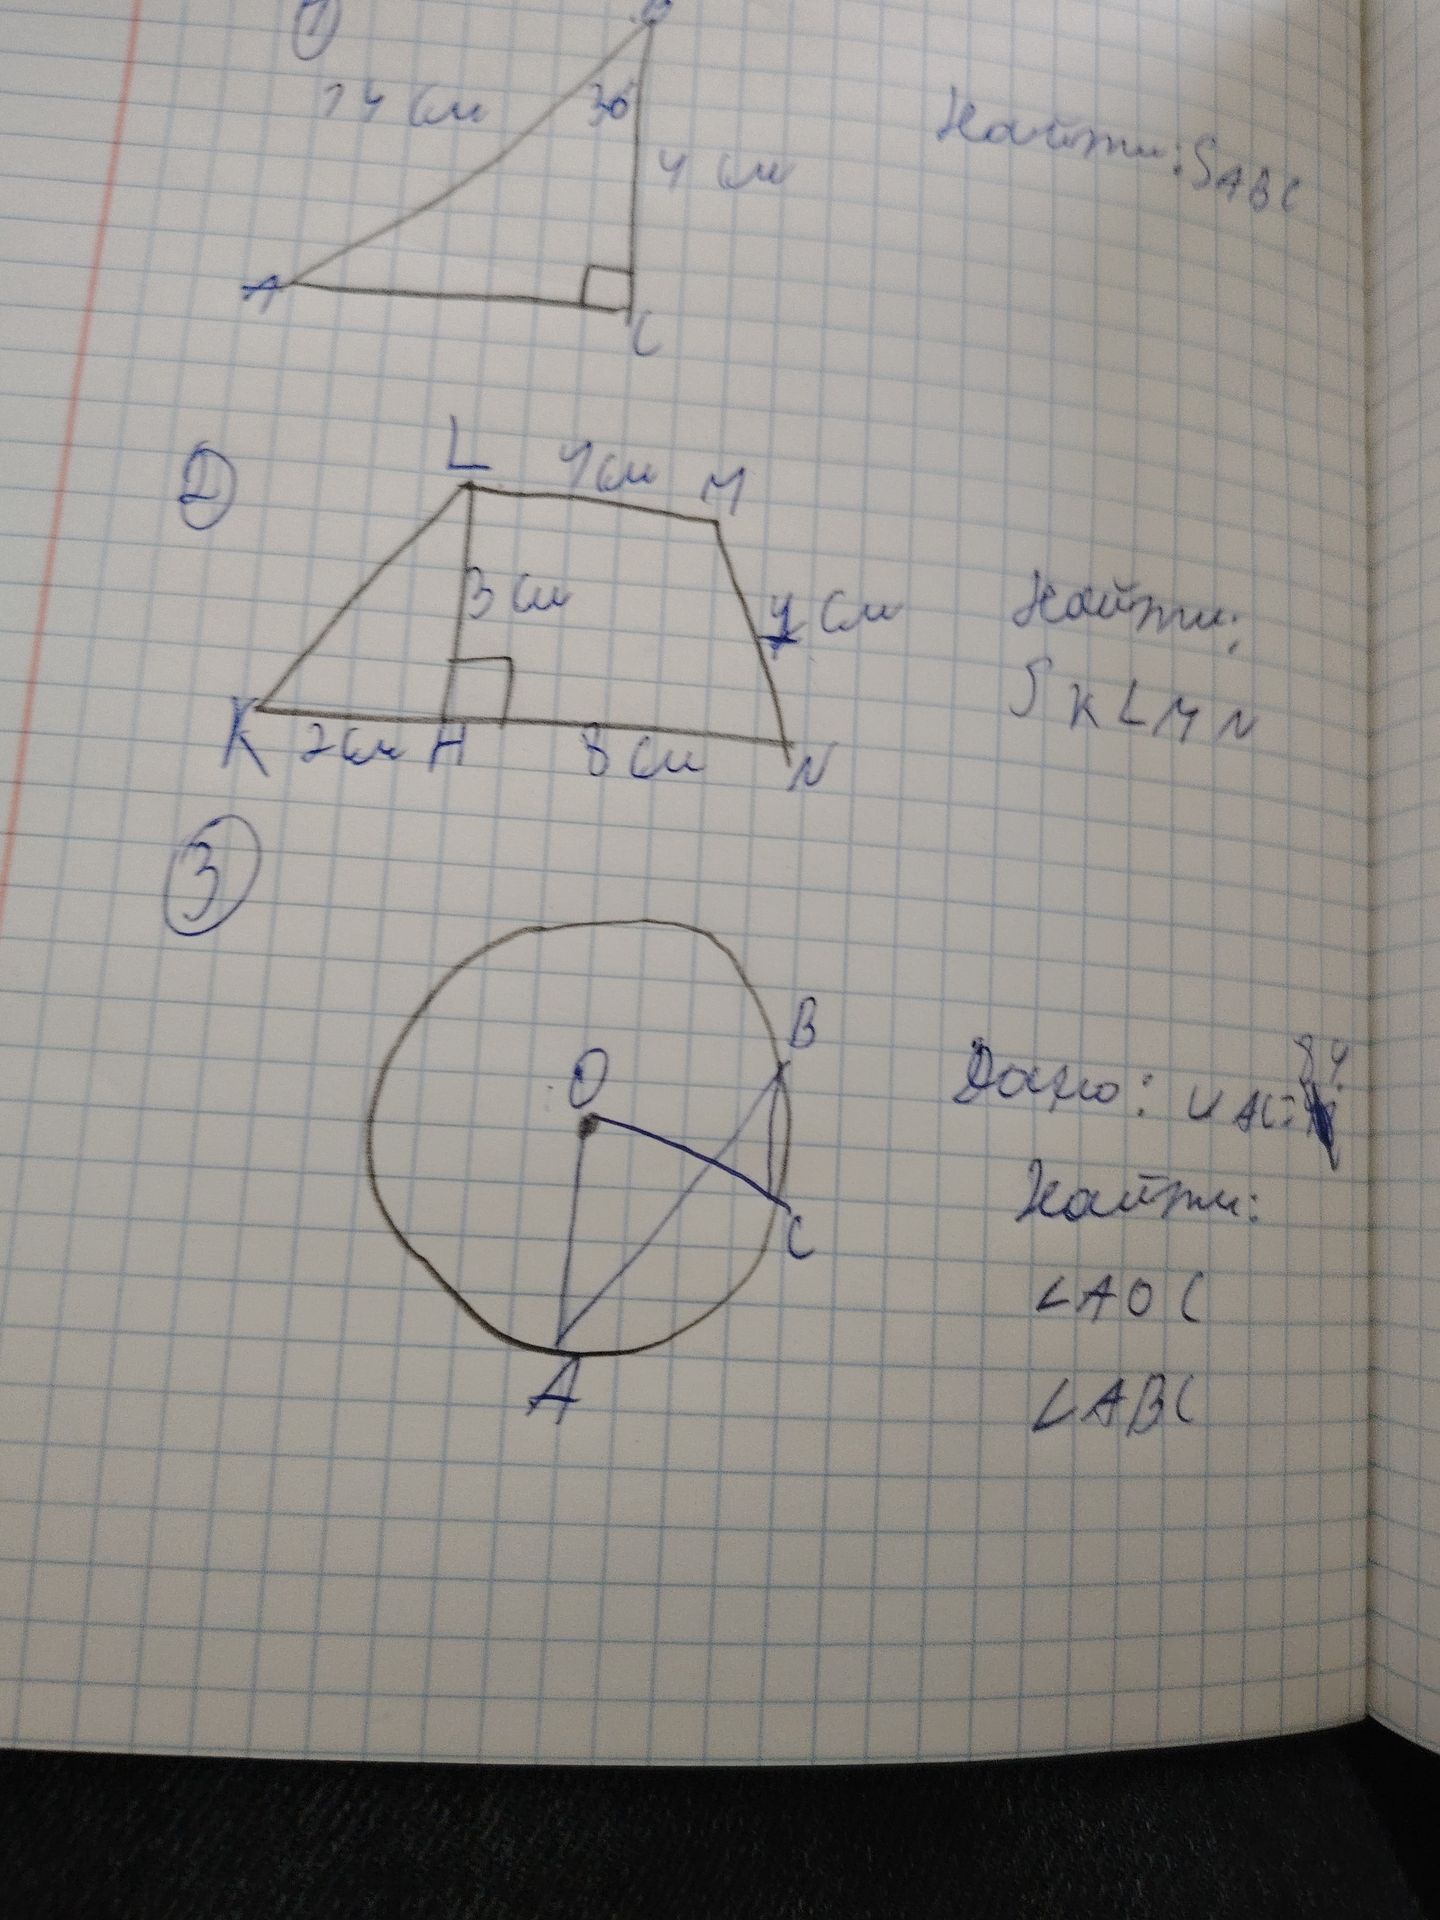 1
B
14 см
30
4 см
Найти: S ABC
A
C
2
L
4 см
M
3 см
4 см
Найти:
S KLMN
K
2 см
H
8 см
N
3
B
O
Дано: ∪ AC = 84
C
Найти:
∠AOC
A
∠ABC